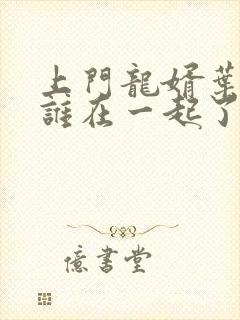 上門龍婿葉
誰在一起了
億書堂